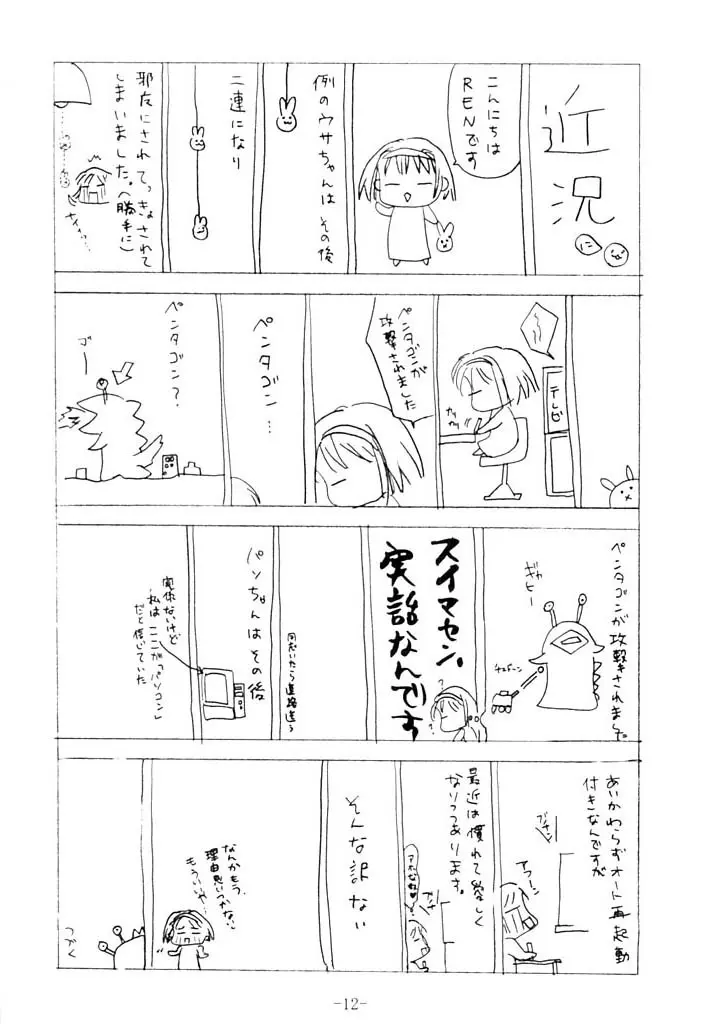 近況
に
こんにちは
RENです
例のウサちゃんは その後
二連になり
邪魔にされててっきょされて
しまいました。(勝手に)
テレビ
カリカリ
ペンタゴンが
攻撃されました
ペンタゴン…
ペンタゴン?
ゴー
ペンタゴンが攻撃されました。
ギャヒー
チュドーン
スイマセン、
実話なんです
パソちゃんは その後
関係ないけど
私はここが「パソコン」
だと信じていた
あいかわらずオート再起動
付きなんですが
ブチン
アワーン
最近は慣れて愛しく
なりつつあります。
そんな訳ない
なんかもう、
理由思いつかない
もういいや…
つづく
-12-